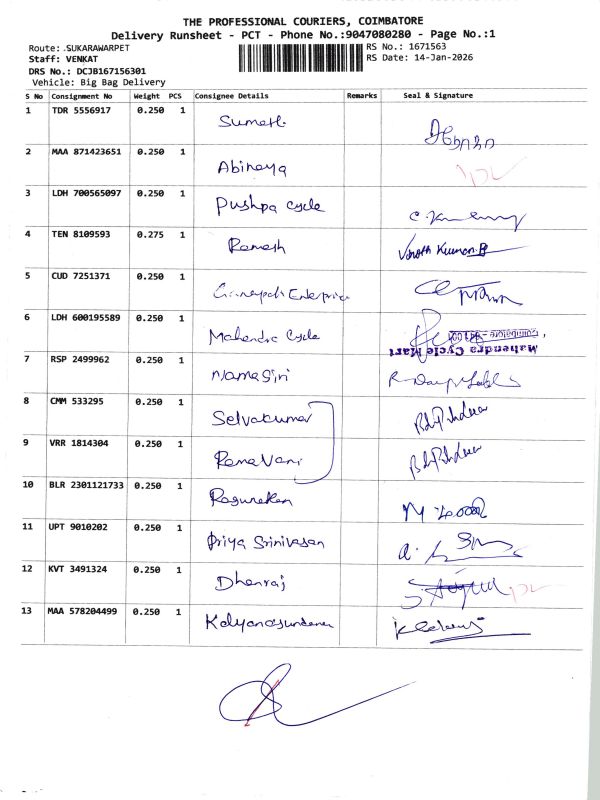 THE PROFESSIONAL COURIERS, COIMBATORE
Delivery Runsheet - PCT - Phone No.:9047080280 - Page No.:1
Route: .SUKARAWARPET
RS No.: 1671563
Staff: VENKAT
RS Date: 14-Jan-2026
DRS No.: DCJB167156301
Vehicle: Big Bag Delivery
S No Consignment No Weight PCS Consignee Details Remarks Seal & Signature
1 TDR 5556917 0.250 1 Sumesh
2 MAA 871423651 0.250 1 Abinaya
3 LDH 700565097 0.250 1 Pushpa cycle
4 TEN 8109593 0.275 1 Ramesh Vinoth Kumar.B
5 CUD 7251371 0.250 1 Enterprice
6 LDH 600195589 0.250 1 Mahendra Cycle Mahendra Cycle Mart Coimbatore
7 RSP 2499962 0.250 1 Namagiri
8 CMM 533295 0.250 1 Selvakumar
9 VRR 1814304 0.250 1 Rama Vani
10 BLR 2301121733 0.250 1 Ragunathan
11 UPT 9010202 0.250 1 Priya Srinivasan
12 KVT 3491324 0.250 1 Dhanraj
13 MAA 578204499 0.250 1 Kalyanasundaram